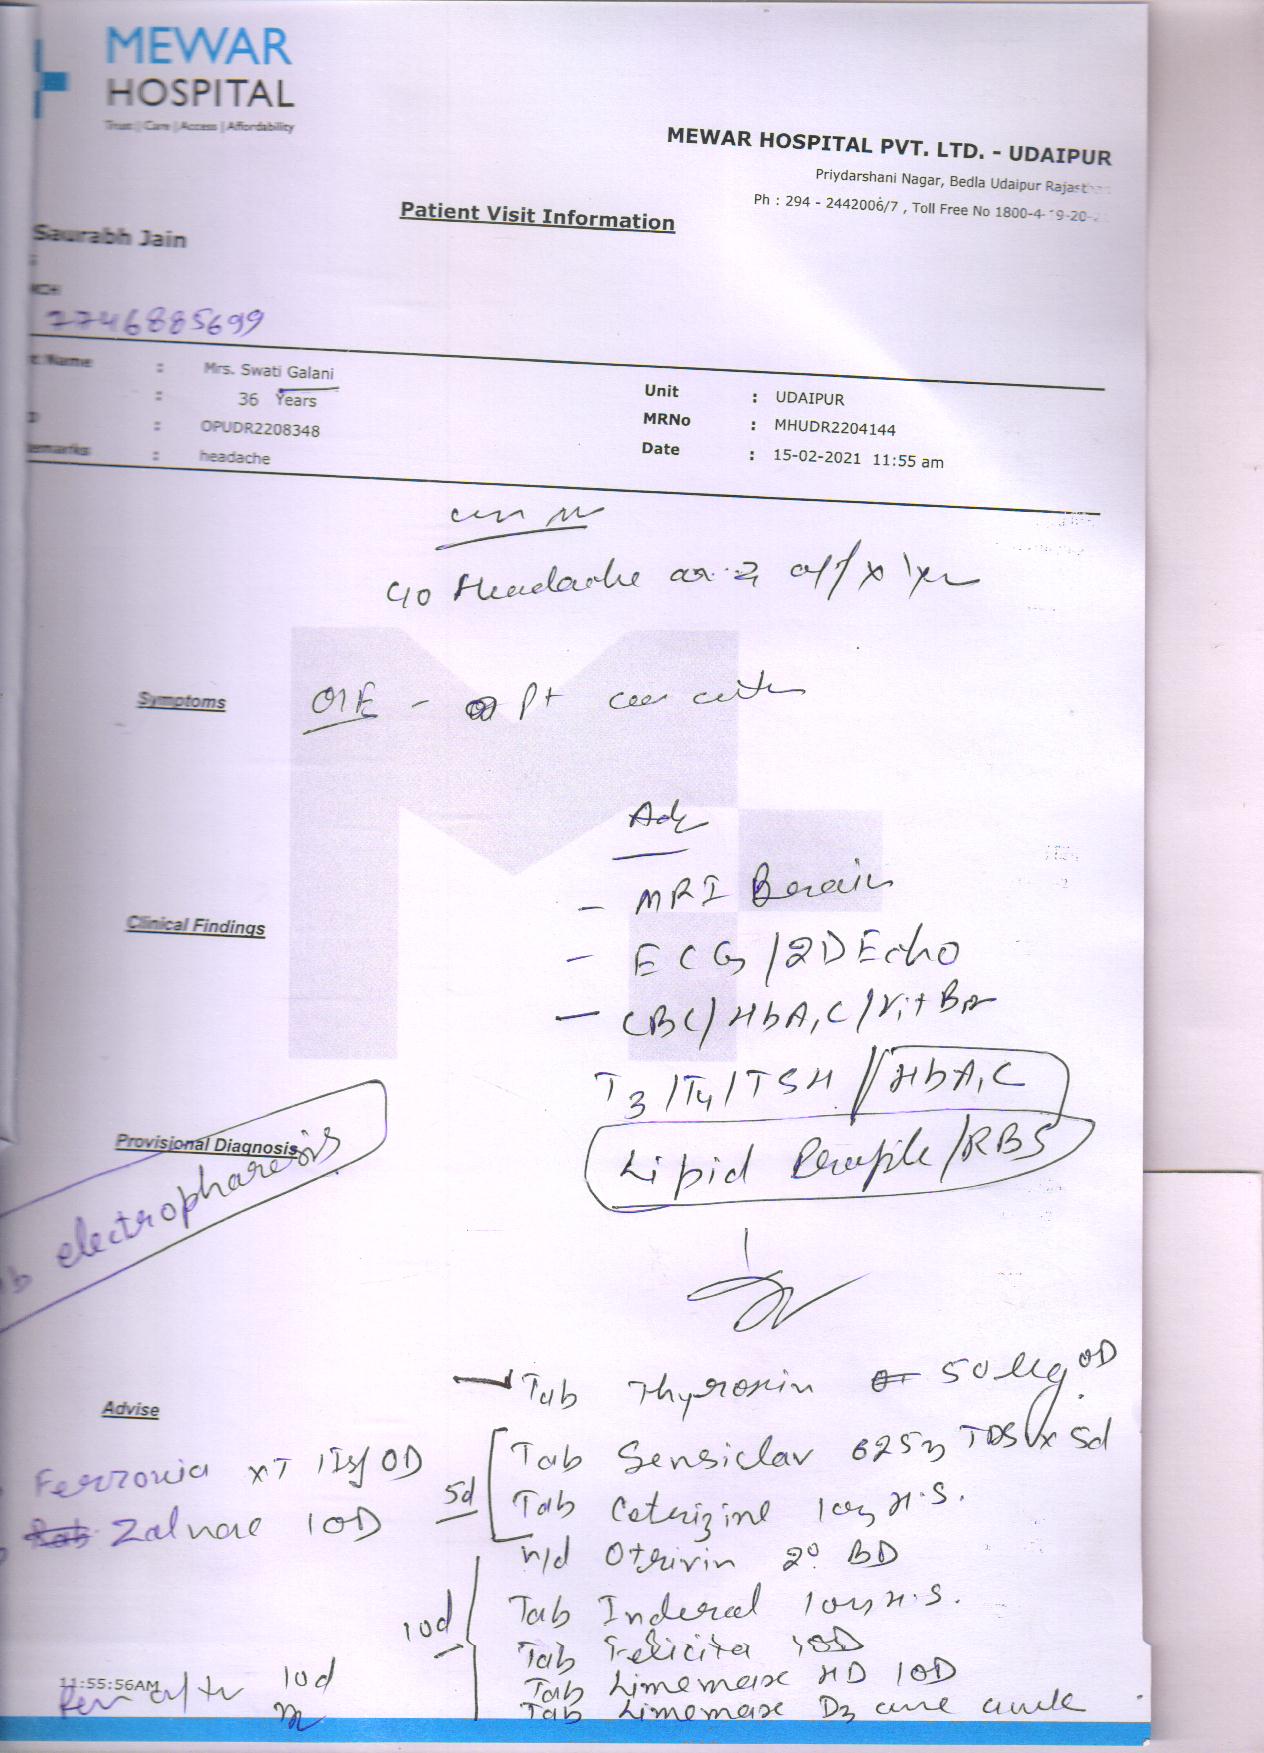 MEWAR
HOSPITAL
Trust | Care | Access | Affordability
MEWAR HOSPITAL PVT. LTD. - UDAIPUR
Priydarshani Nagar, Bedla Udaipur
Ph : 294 - 2442006/7 , Toll Free No 1800-4-19-20-
Patient Visit Information
Saurabh Jain
:
7746885699
Name : Mrs. Swati Galani
: 36 Years
: OPUDR2208348
: headache
Unit : UDAIPUR
MRNo : MHUDR2204144
Date : 15-02-2021 11:55 am
C/o Headache on & off x 1 yr
Symptoms
O/E - Pt
Adv
- MRI Berain
- ECG/2D Echo
- CBC/HbA1C/Vit B12
T3/T4/TSH/HbA1C
Lipid Perofile/RBS
Clinical Findings
Provisional Diagnosis
electropharesis
Tab Thyroxin 50 mcg OD
Advise
Tab Sensiclav 625mg TDS x 5d
Tab Ceterizine 10mg H.S.
5d
n/d Otrivin 2° BD
Ferronia XT OD
Zalnare 1OD
Tab Inderal 10mg H.S.
10d
Tab Felicita 1OD
Tab Limemax HD 1OD
Tab Limemax D3
11:55:56AM
Rev after 10d